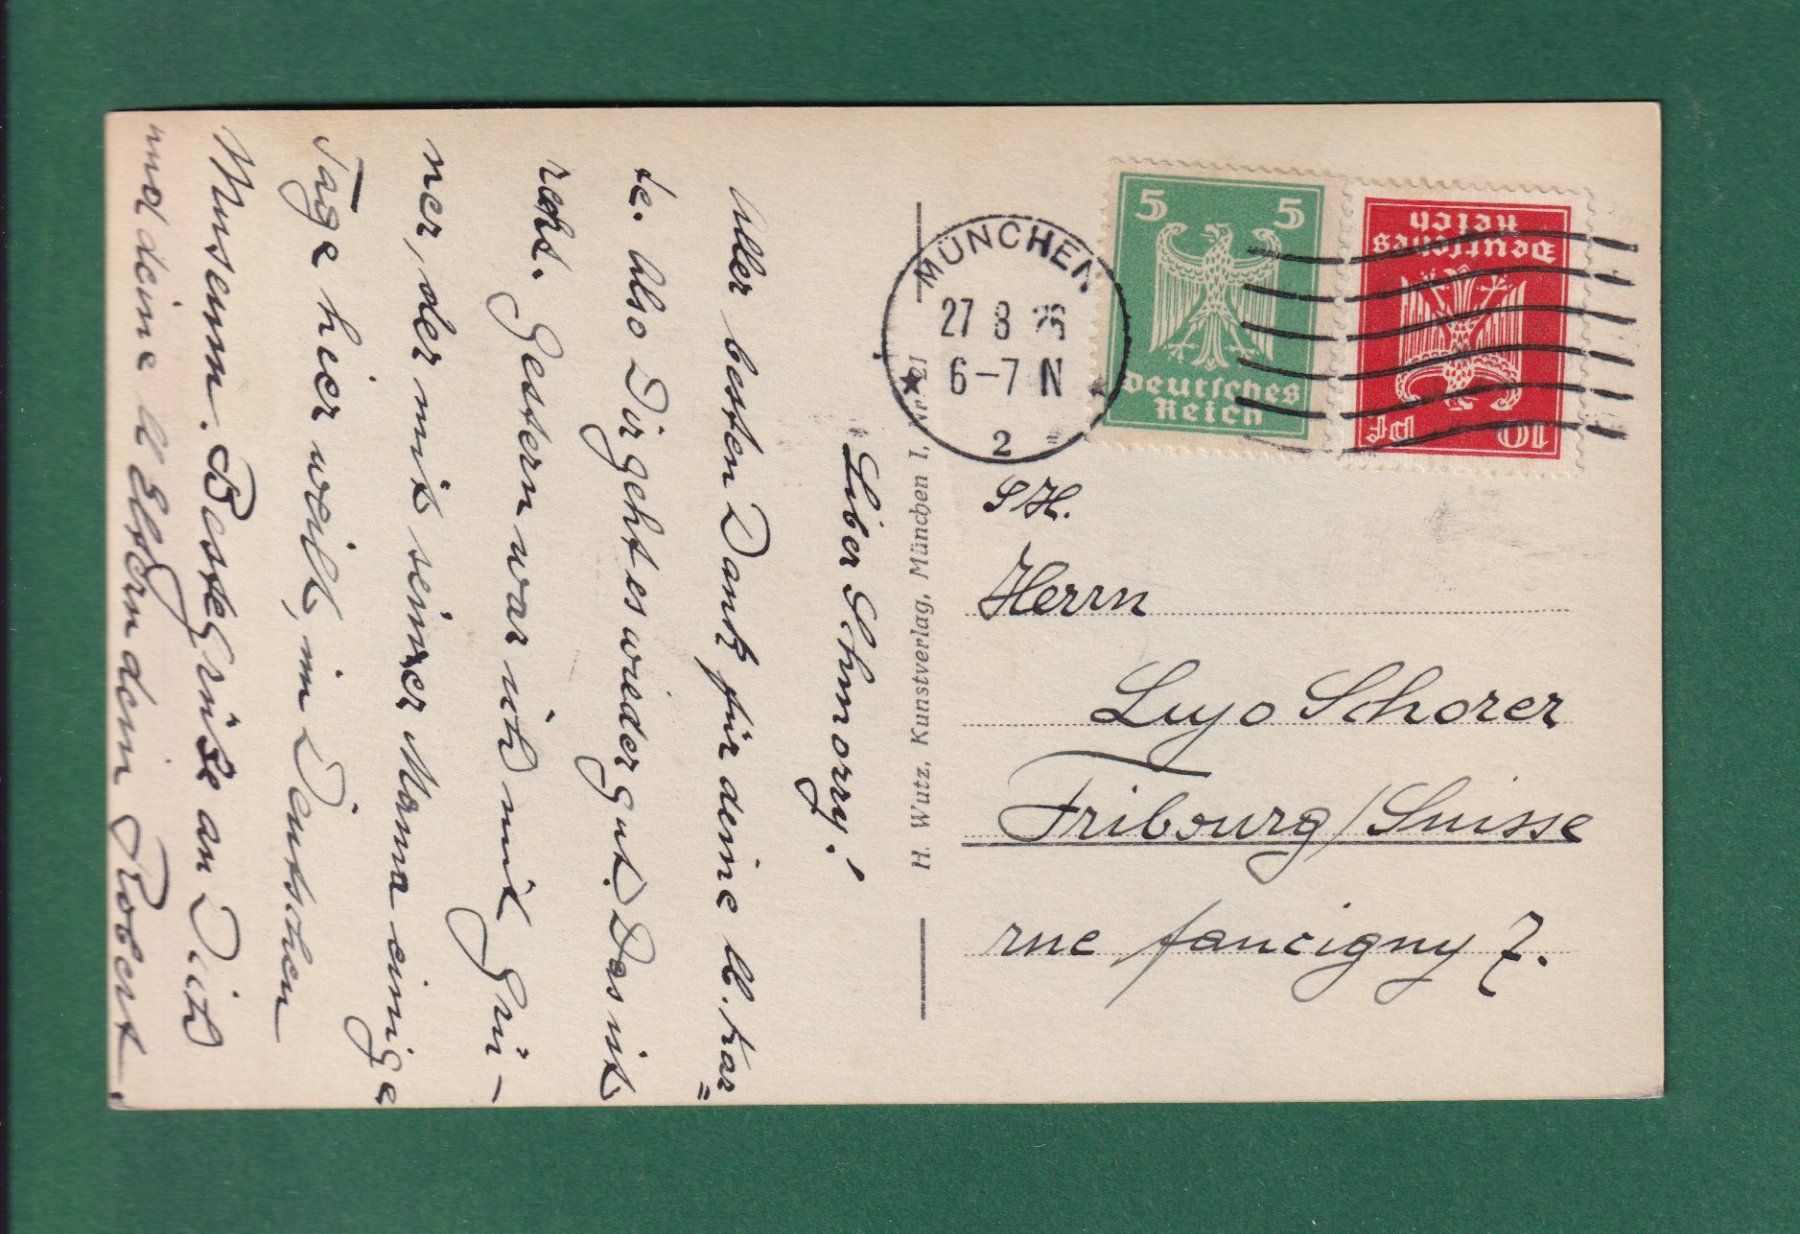 Liber Schmorry!
Aller besten Dank für deine ll. Kar=
te. Also Dir geht es wieder gut. Das ist
recht. Gestern war ich mit Grü-
ner, der mit seiner Mama einige
Tage hier weilt, im Deutschen
Museum. Beste Grüße an Dich
und deine ll Eltern dein Robert.
H. Wutz, Kunstverlag, München I,
MÜNCHEN
27 8
6-7 N
2
5 5
Deutsches
Reich
Deutsches
Reich
10 Pf
S/H.
Herrn
Lujo Schorer
Fribourg/Suisse
rue faucigny 7.